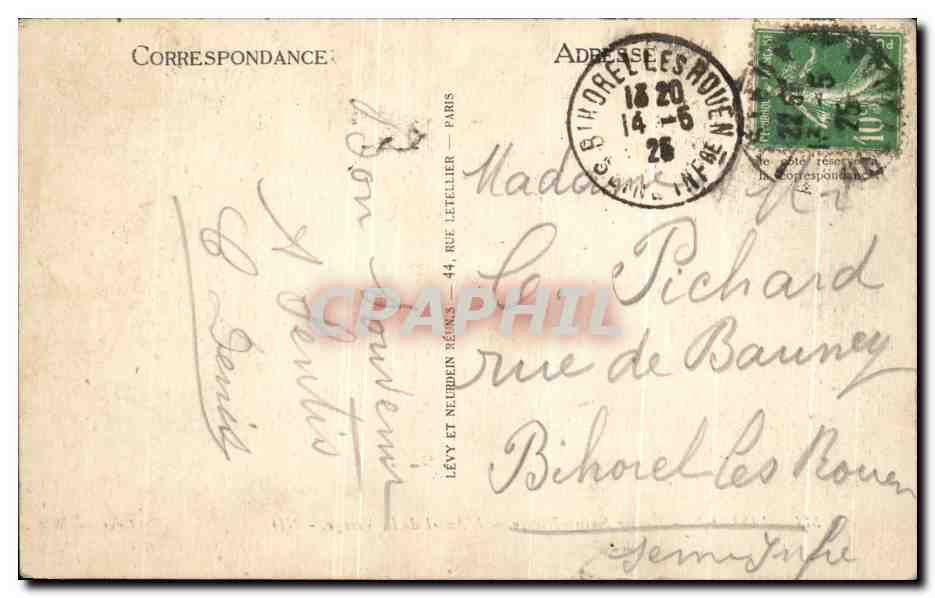 CORRESPONDANCE
ADRESSE
BIHOREL LES ROUEN
13 20
14 -5
25
SEINE INFRE
POSTES
10c
le côté réservé à
la correspondance
Bon souvenir
A Pentis
C Denis
LÉVY ET NEURDEIN RÉUNIS — 44, RUE LETELLIER — PARIS
Madame
Le Pichard
rue de Bauney
Bihorel les Rouen
Seine Infre
CPAPHIL